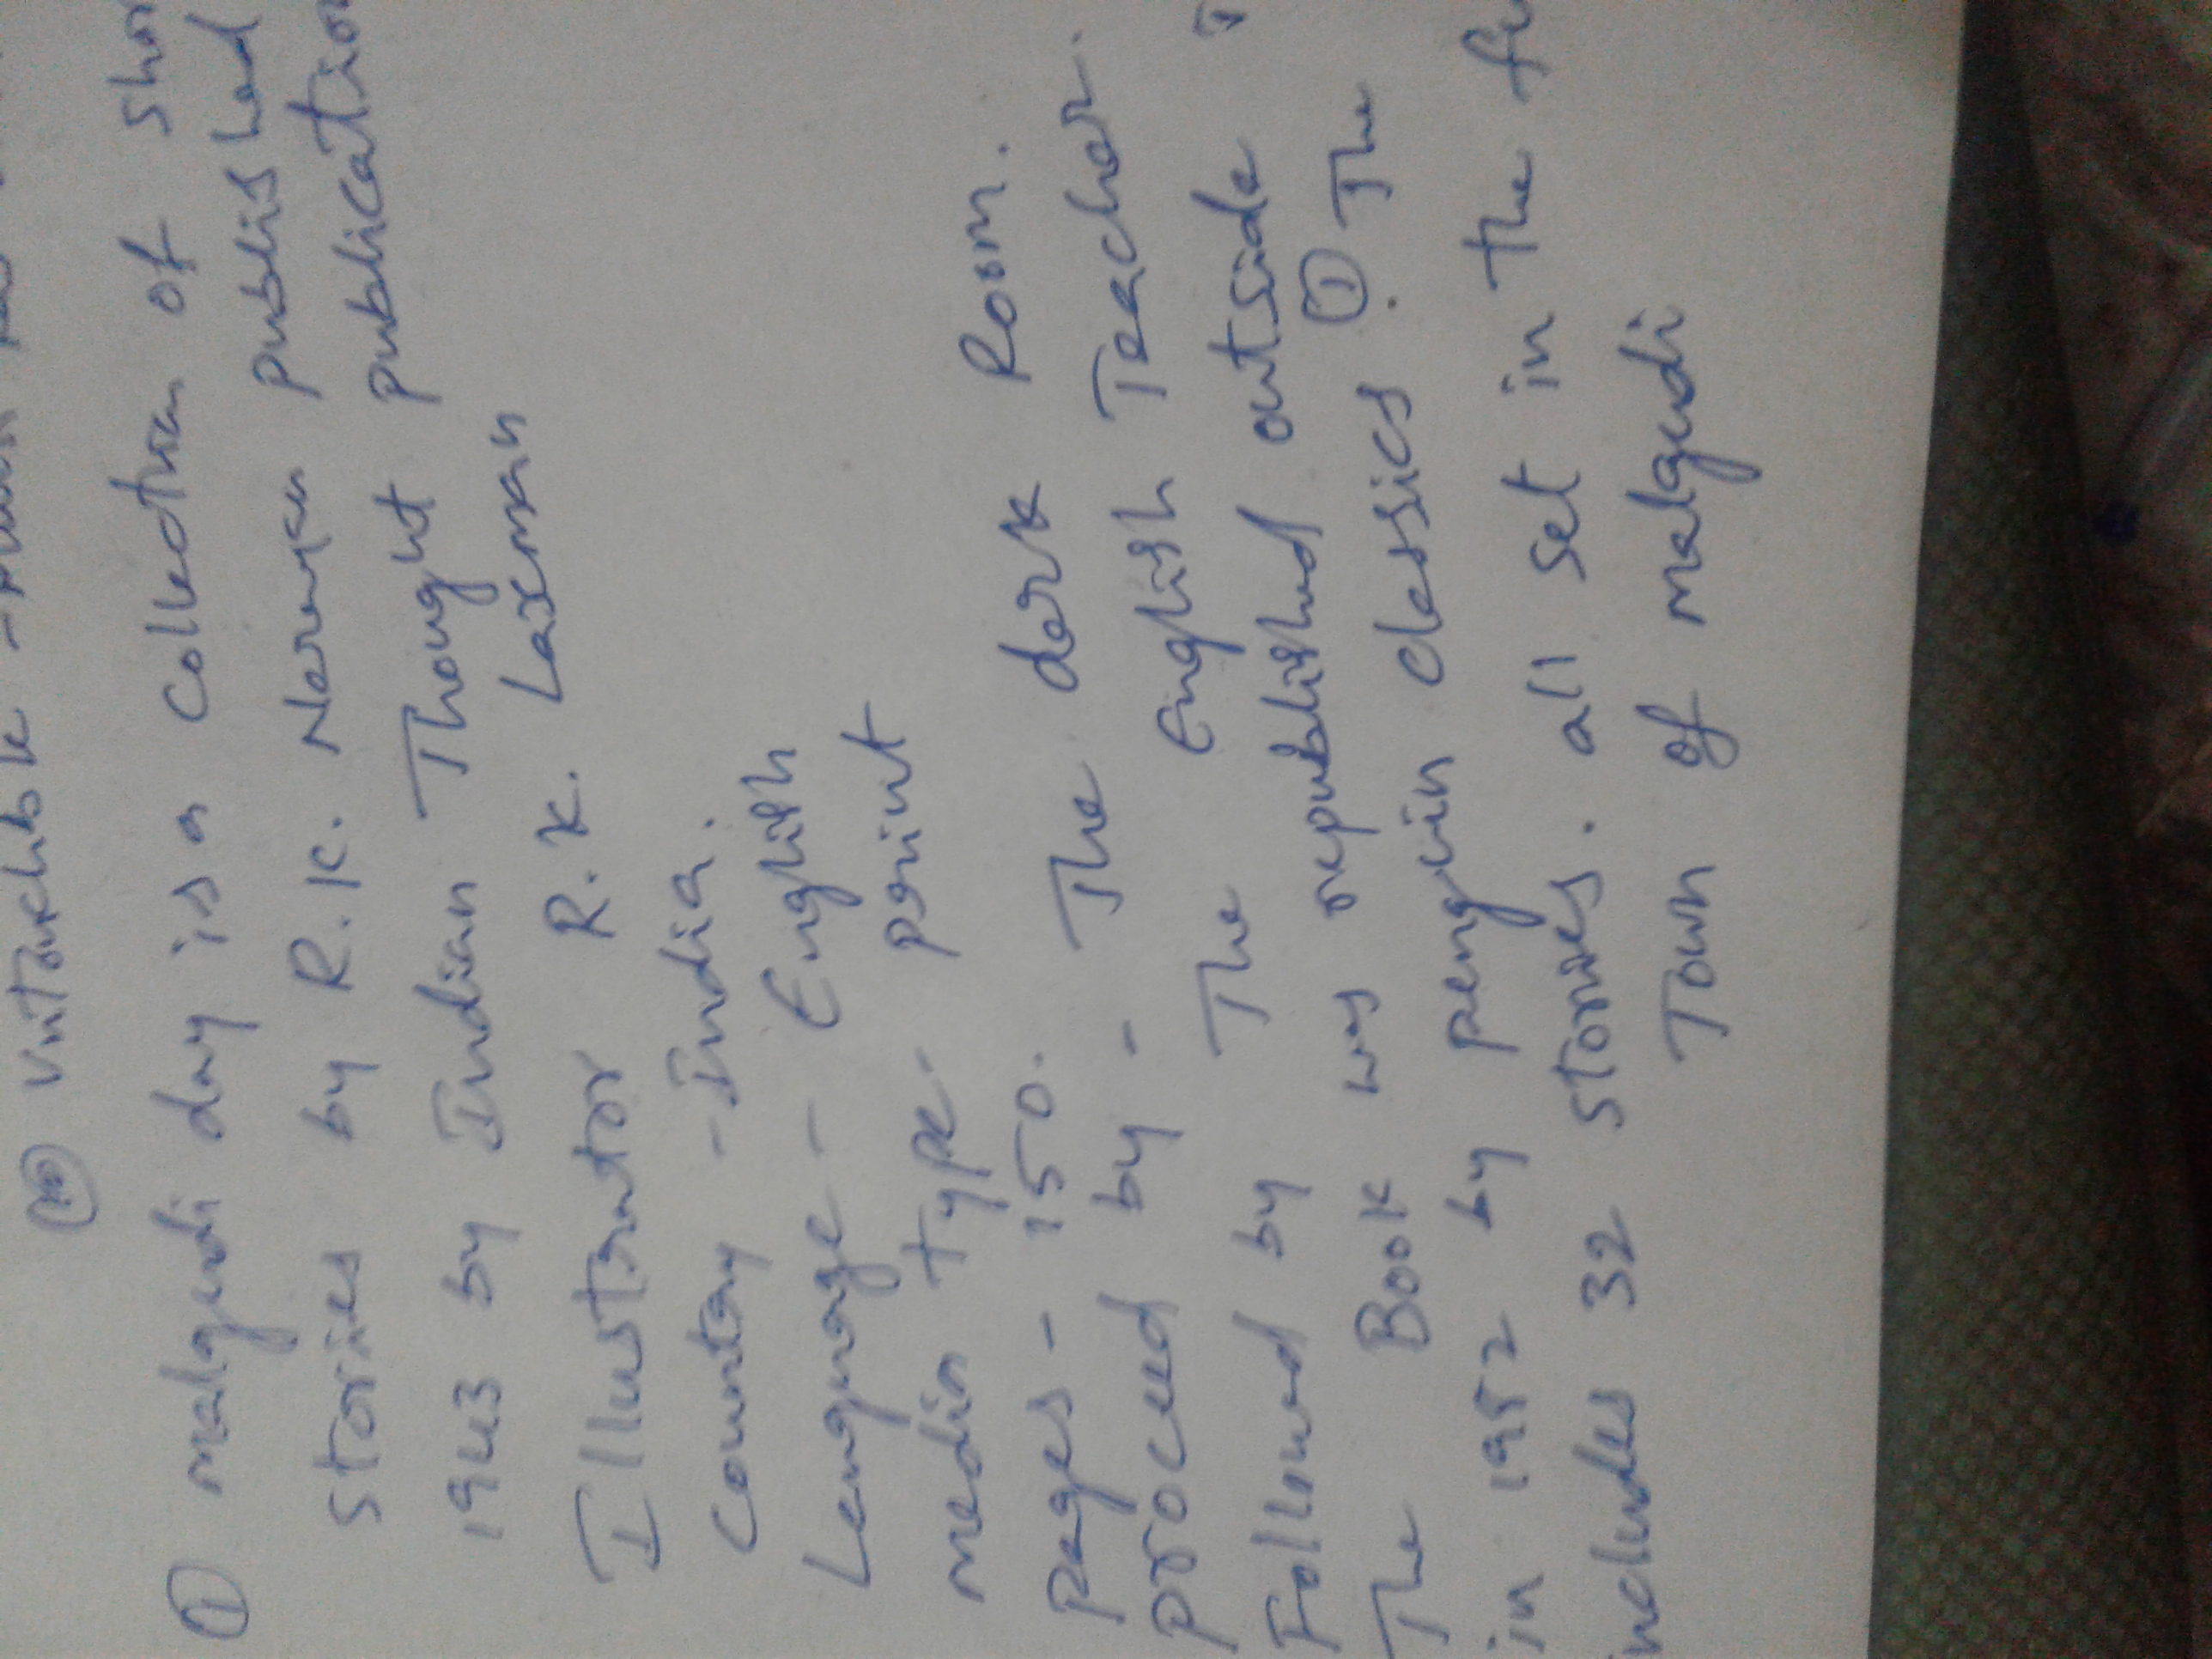 malgudi day is a collection of
stories by R.K. Narayan published
1943 by Indian Thought publication
Illustrator R.K. Laxman
Country - India.
Language - English
media type - print
Pages - 150.
proceed by - The dark Room.
Followed by The English Teacher.
The Book was republished outside
in 1982 by penguin classics. ① The
includes 32 stories. all set in the
Town of malgudi